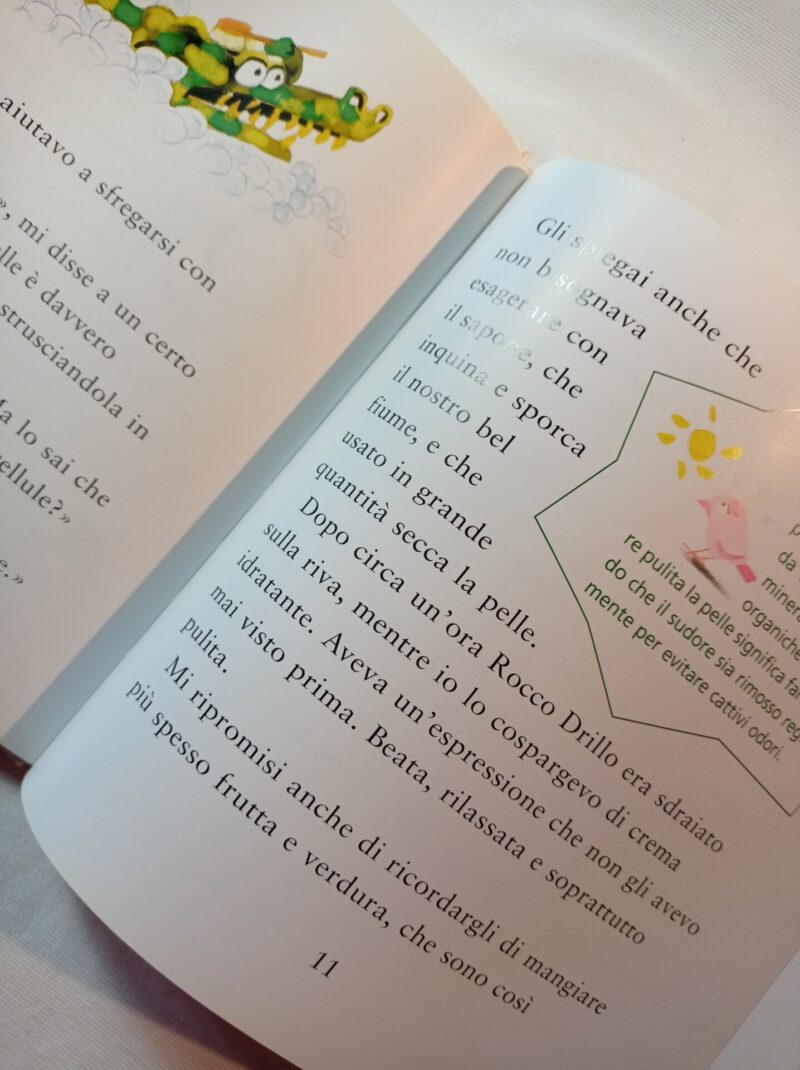 aiutavo a sfregarsi con
», mi disse a un certo
lle è davvero
strusciandola in
Ma lo sai che
cellule?»
e.»
Gli spiegai anche che
non bisognava
esagerare con
il sapone, che
inquina e sporca
il nostro bel
fiume, e che
usato in grande
quantità secca la pelle.
Dopo circa un'ora Rocco Drillo era sdraiato
sulla riva, mentre io lo cospargevo di crema
idratante. Aveva un'espressione che non gli avevo
mai visto prima. Beata, rilassata e soprattutto
pulita.
Mi ripromisi anche di ricordargli di mangiare
più spesso frutta e verdura, che sono così
11
p
da
minera
organiche
re pulita la pelle significa far
do che il sudore sia rimosso reg
mente per evitare cattivi odori.